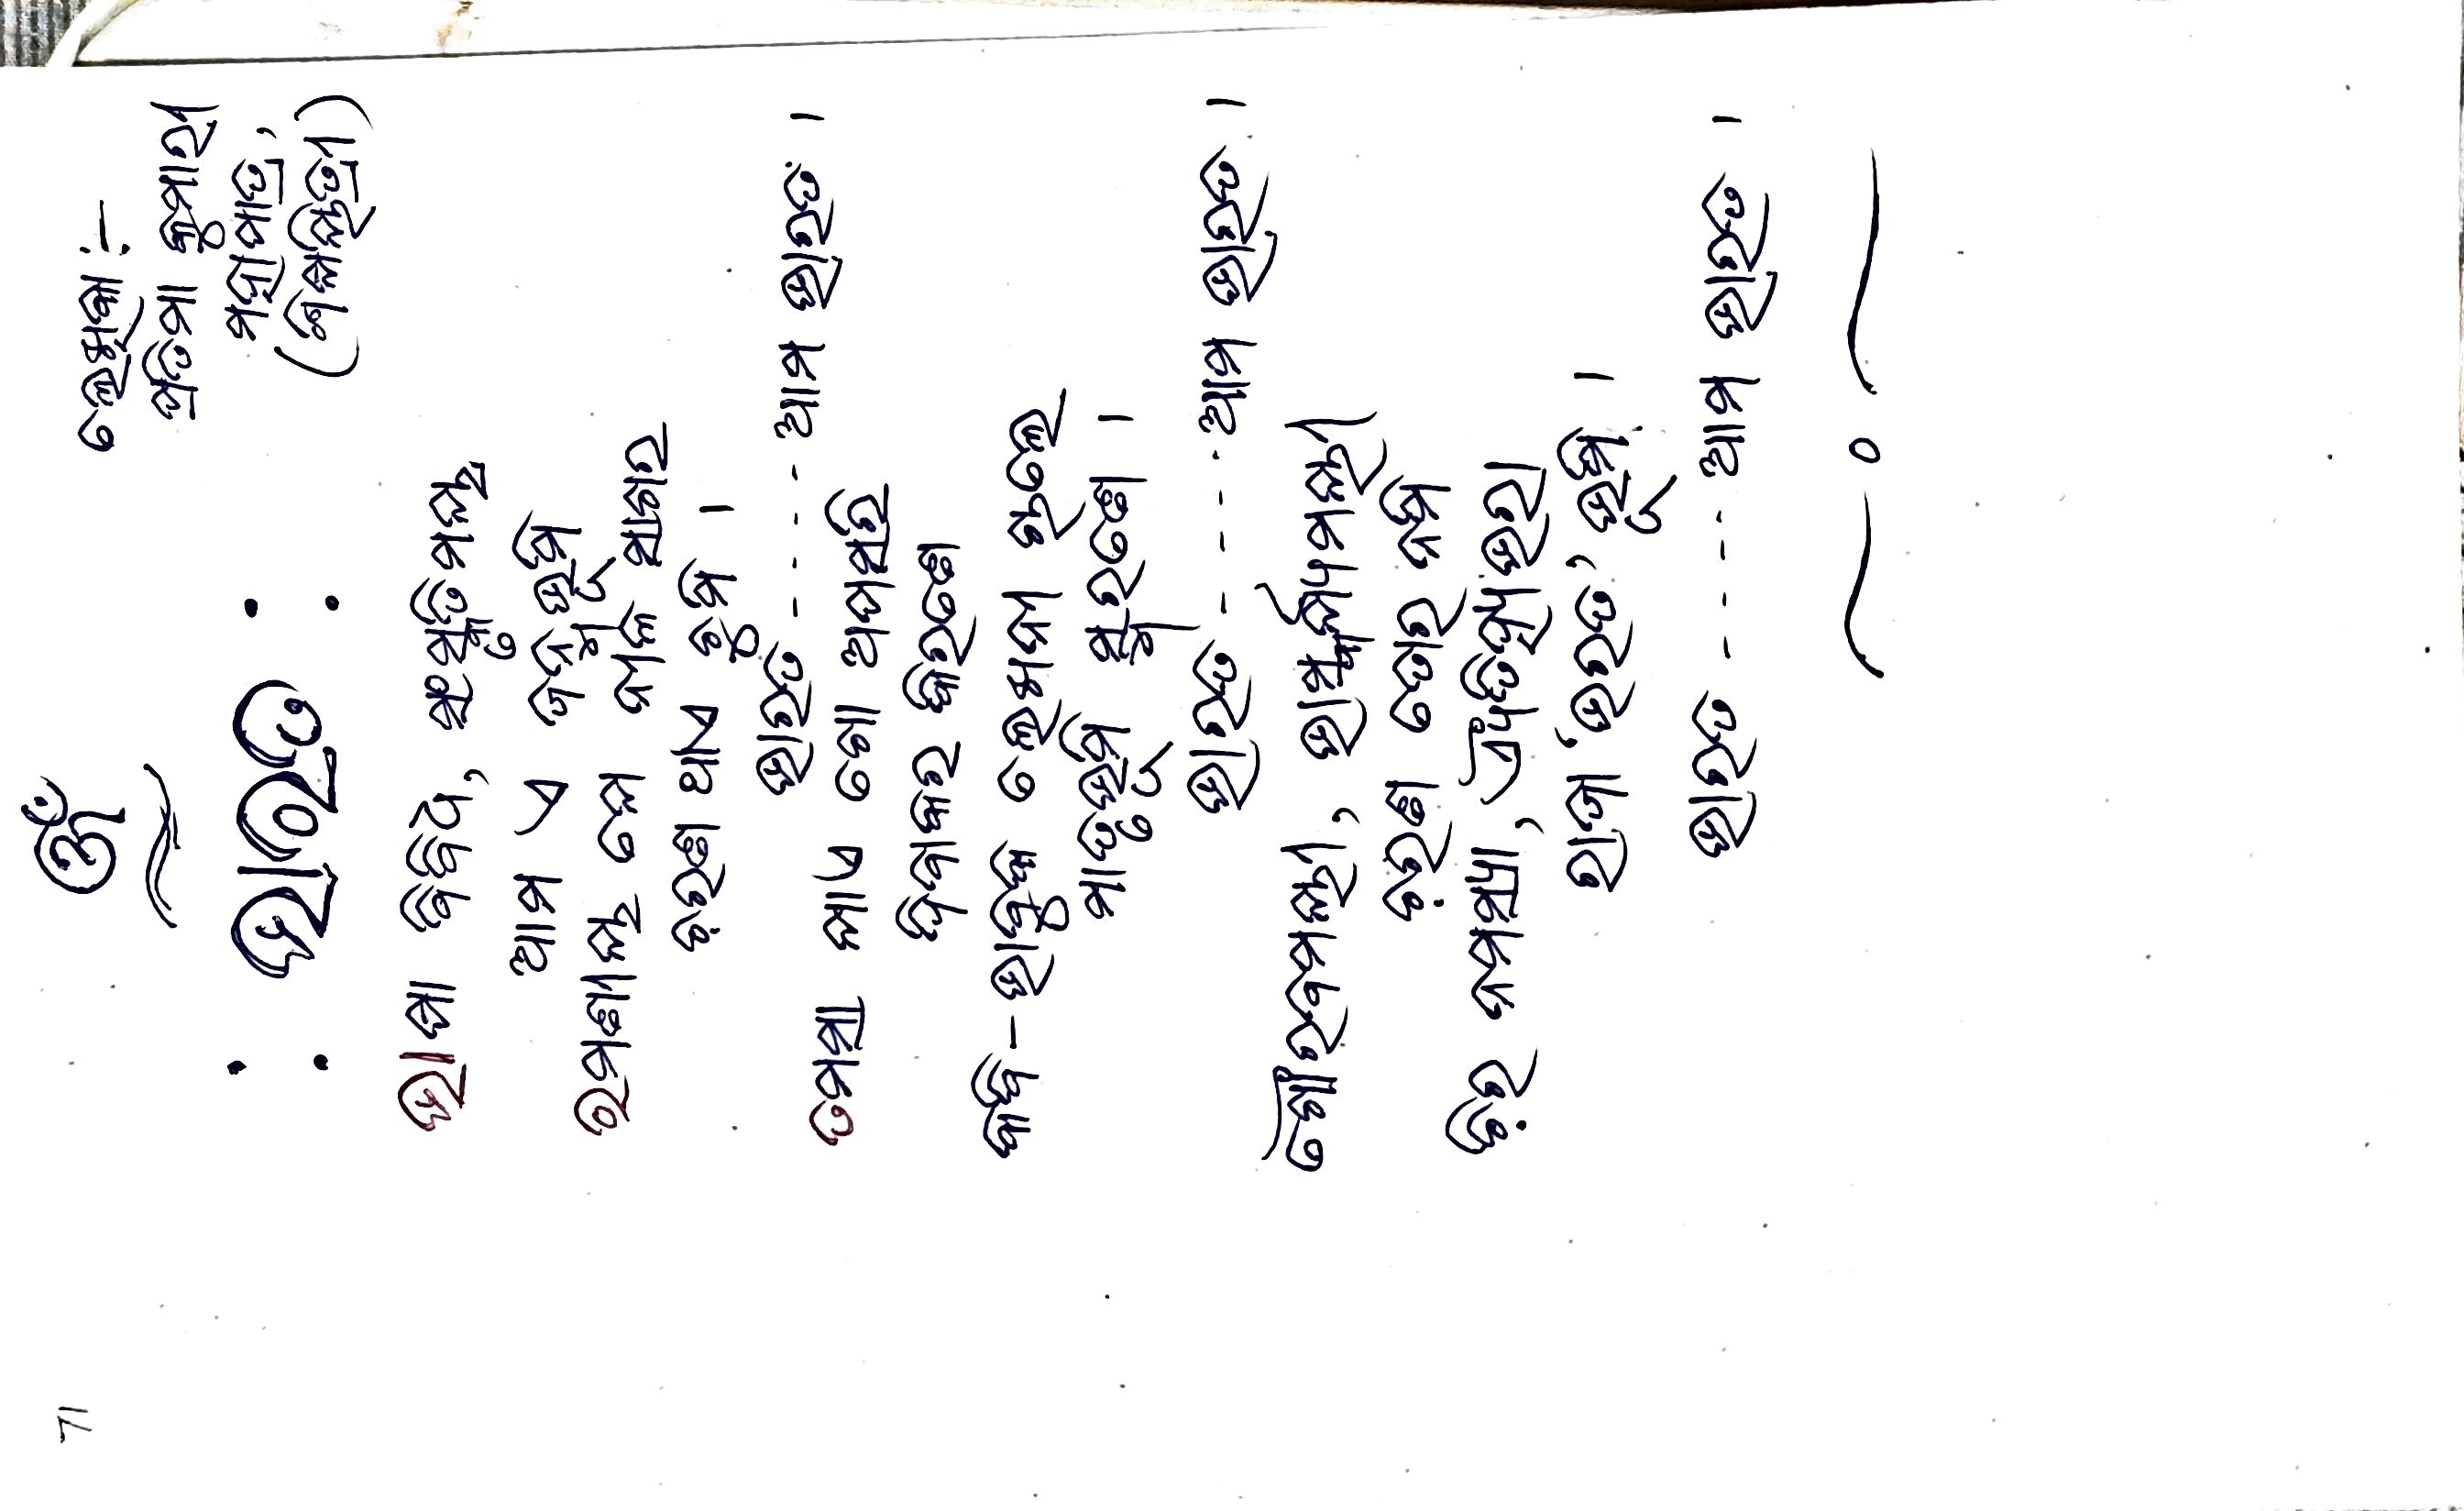 71
ଓଁ
ଲେଖିକା :-
ପ୍ରତିମା କୁମାରୀ
ମହାପାତ୍ର,
(ଶିକ୍ଷୟିତ୍ରୀ)
: ଭାରତ :
ଭାଷା ବିବିଧ, ସଂସ୍କୃତିମୟ
ଆମ ଏ ଜନ୍ମଭୂମି
ରମଣୀୟ ସେ ନୀଳ ସାଗର
ଚରଣ ଥାଏ ଚୁମି ।
ଭାରତ - - - - ଆମ ଭାରତ ।
ତମସା ଯାଏ ଗୋ ଅପସରି
ଦିବାକର କିରଣେ
କବି - ଭାବୁକ ଲେଖନୀ ଚାଲେ
ମାତୃଭୂମି ସ୍ମରଣେ ।
ଭାରତ - - - - ଆମ ଭାରତ ।
ଗୌରବମୟୀ, ଭାସ୍କର୍ଯ୍ୟମୟୀ
ଚରଣ ତୋର ନମି
ଚିର ନମସ୍ୟା, ଐତିହ୍ୟଭରା
ରାଜା 'ଭରତ' ଭୂମି ।
ଭାରତ - - - - ଆମ ଭାରତ ।